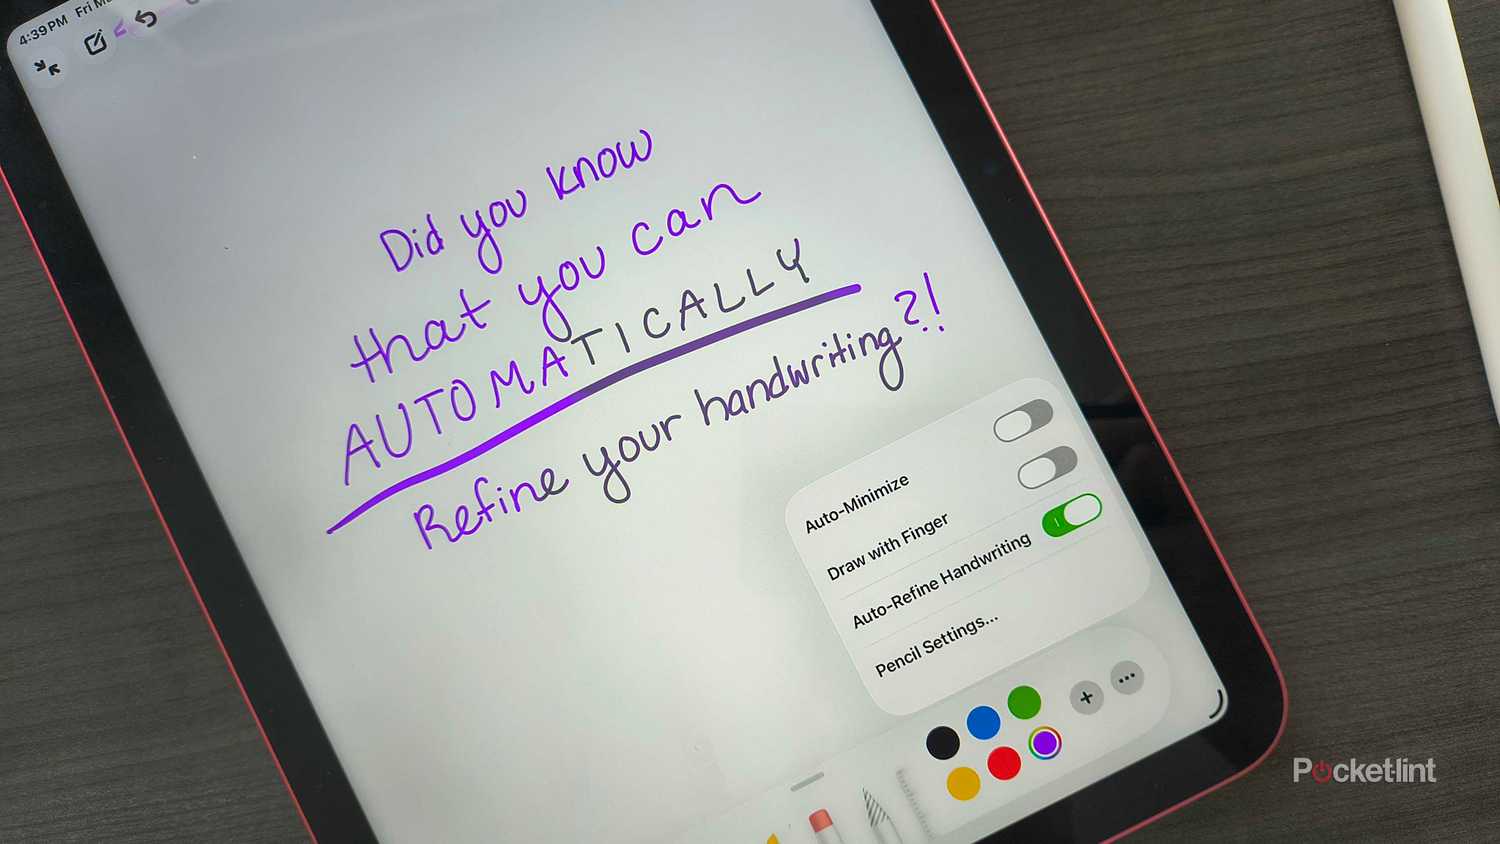 4:39 PM Fri
Did you know
that you can
AUTOMATICALLY
Refine your handwriting?!
Auto-Minimize
Draw with Finger
Auto-Refine Handwriting
Pencil Settings...
Pocketlint